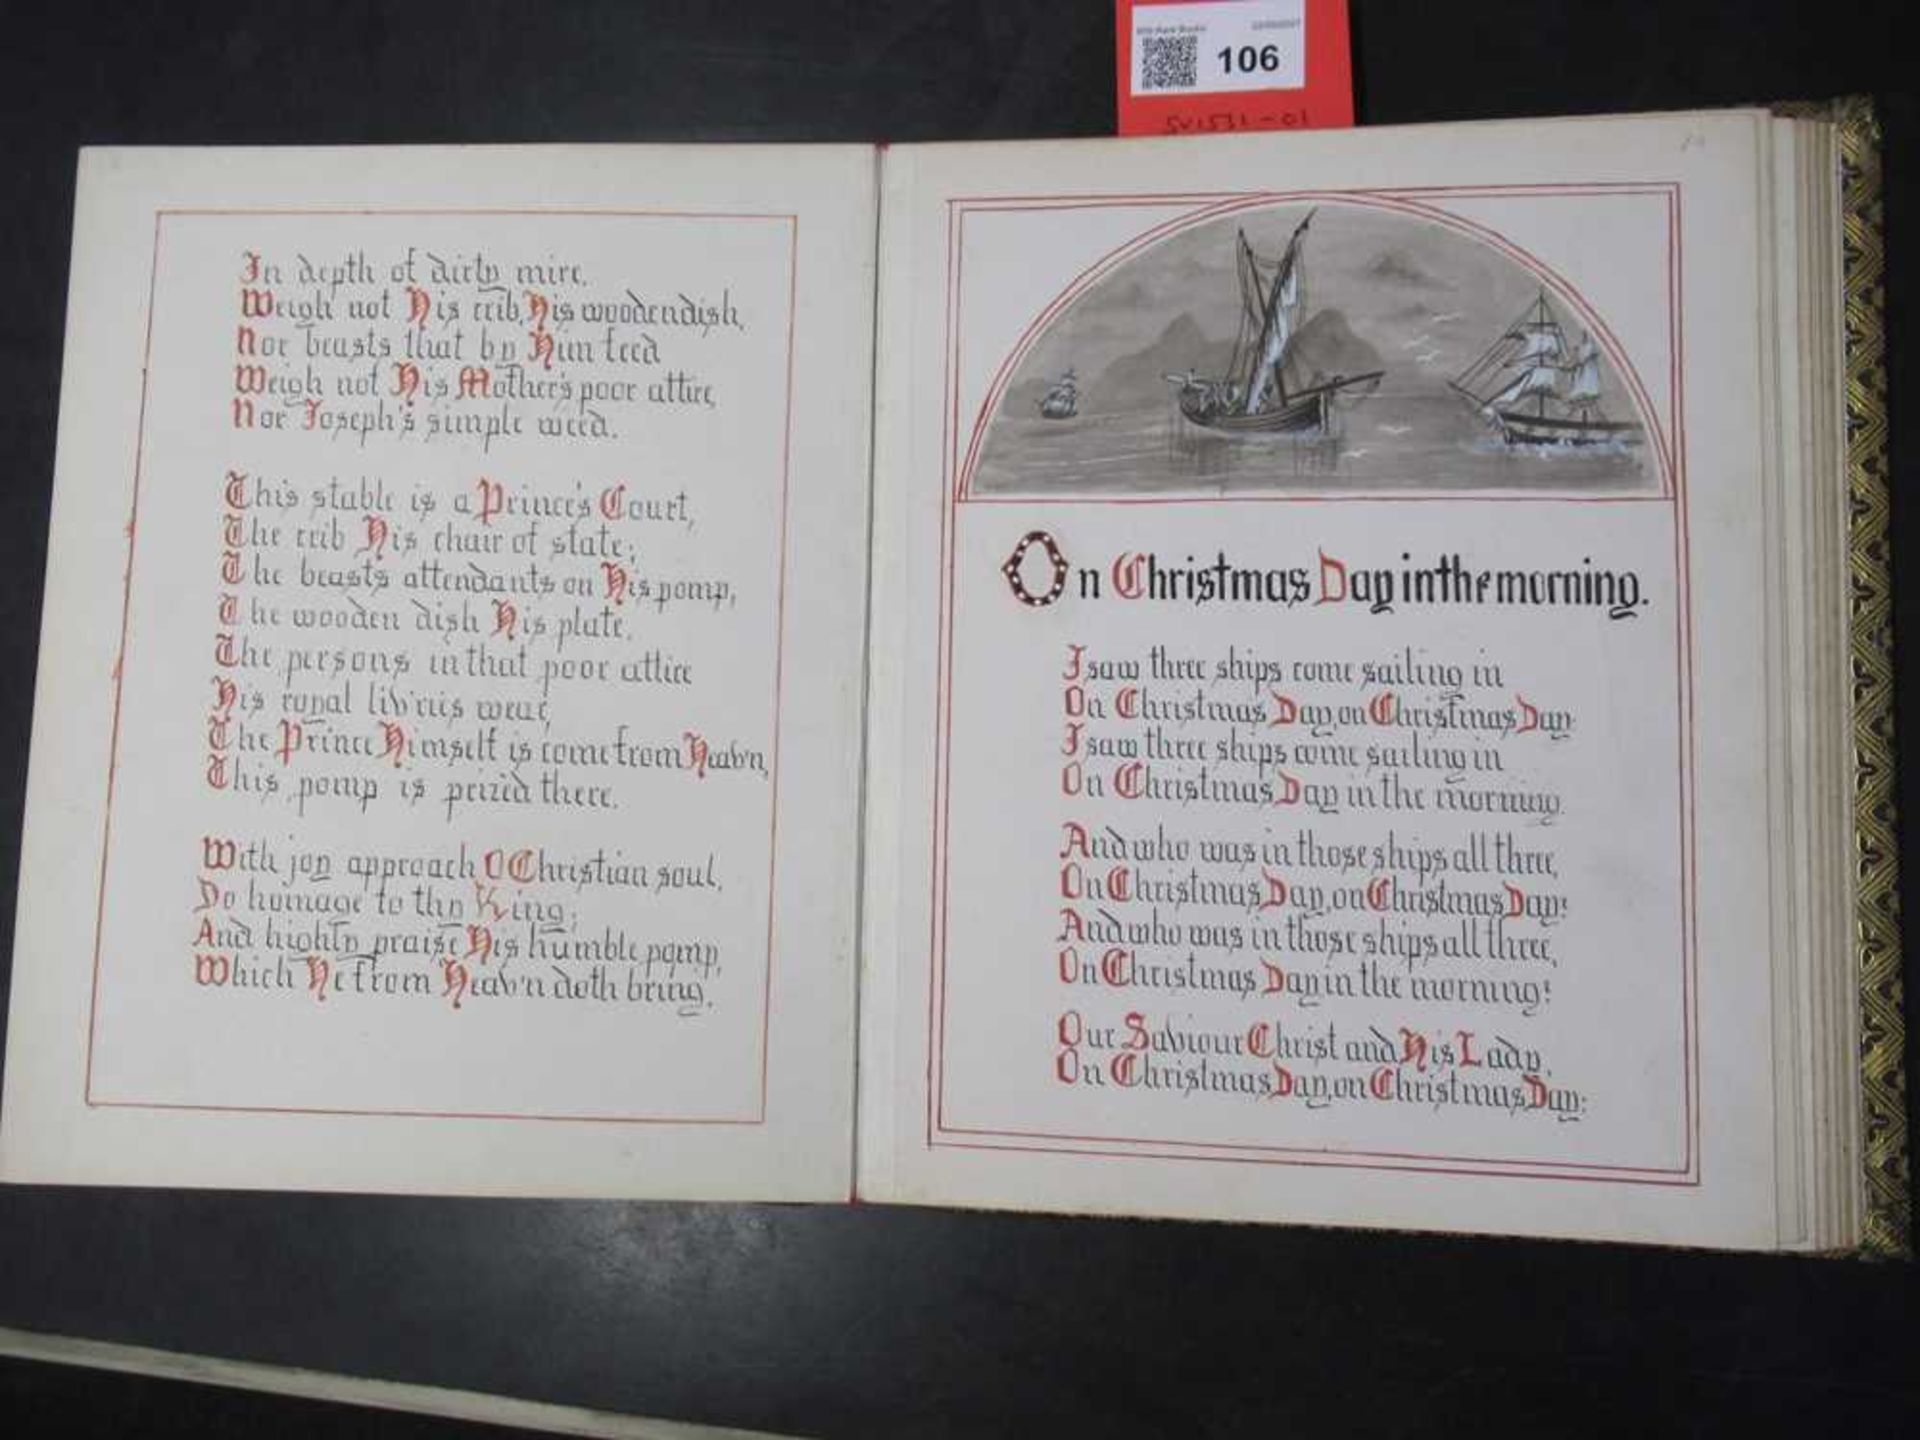 In depth of dirty mire.
Weigh not His crib, His wooden dish,
Nor beasts that by Him feed
Weigh not His Mother's poor attire,
Nor Joseph's simple weed.
This stable is a Prince's Court,
The crib His chair of state;
The beasts attendants on His pomp,
The wooden dish His plate.
The persons in that poor attire
His royal liv'ries wear,
The Prince Himself is come from Heav'n,
This pomp is prized there.
With joy approach O Christian soul,
Do homage to thy King;
And highly praise His humble pomp,
Which He from Heav'n doth bring.
106
SV1531-01
On Christmas Day in the morning.
I saw three ships come sailing in
On Christmas Day, on Christmas Day:
I saw three ships come sailing in
On Christmas Day in the morning.
And who was in those ships all three,
On Christmas Day, on Christmas Day:
And who was in those ships all three,
On Christmas Day in the morning:
Our Saviour Christ and His Lady,
On Christmas Day, on Christmas Day: